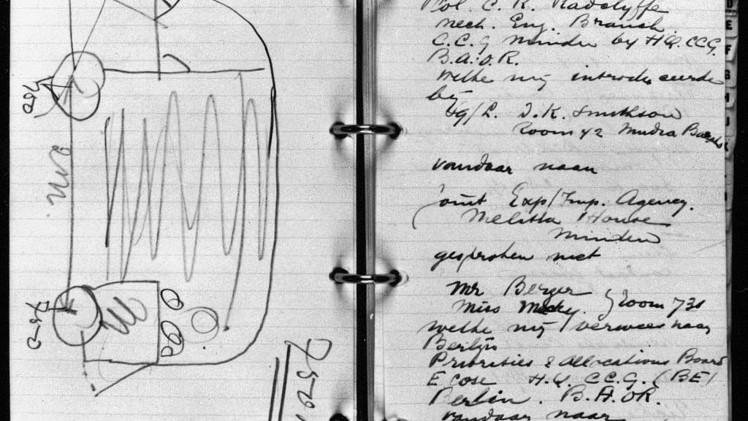 Col. C. R. Radclyffe
Mech. Eng. Branch.
C.C.G Minden by H.Q. CCG.
B.A.O.R.
welke mij introduceerde
bij
J.K. Smithson
Room 42 Mudra
vandaar naar
Joint Exp/Imp. Agency.
Melitta House
Minden
gesproken met
Mr Berger
Miss Room 731
welke mij verwees naar
Berlijn
Priorities & Allocations Board
H.Q. C.C.G. (BE)
Berlin. B.A.O.R.
vandaar naar
D
E
F
G
H